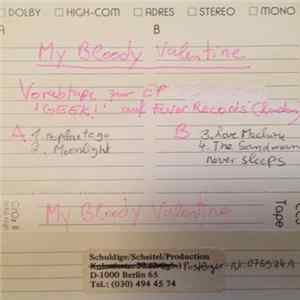 DOLBY HIGH-COM ADRES STEREO MONO
A B
My Bloody Valentine
Vorabtape zur EP
'GEEK!' auf Fever Records
A 1. no place to go
2. Moonlight
B 3. Love Machine
4. The Sandman
never sleeps
My Bloody Valentine
Tape
Schuldige/Scheitel/Production
D-1000 Berlin 65
Tel.: (030) 494 45 74